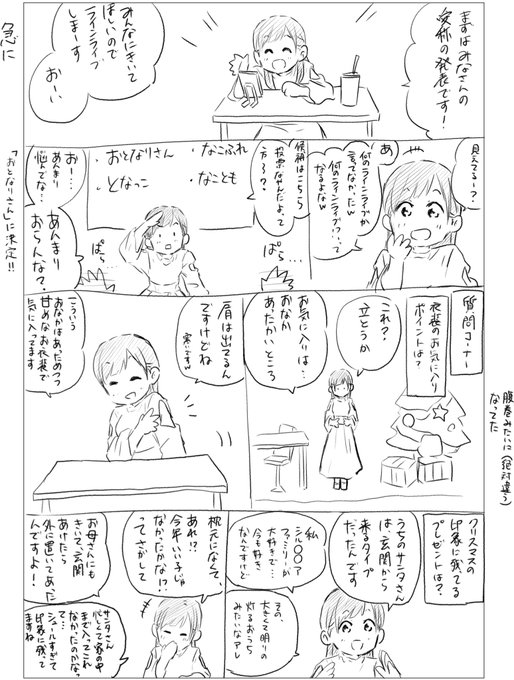 まずはみなさんの
愛称の発表です！
みんなにきいて
ほしいので
ラインライブ
しまーす
おーい
急に
見えてるー？
あ
何のラインライブか
言ってなかったw
何のラインライブ？って
なるよなw
候補はこちら
投票なんだよって
方ら？
・おとなりさん
・なこふれ
・となっこ
・なことも
ぱら…
ぱら
おー…
あんまり
悩んでな…
あんまり
おらんな？
「おとなりさん」に決定!!
質問コーナー
衣装のお気に入り
ポイントは？
これ？
立とうか
お気に入りは…
おなか
あたたかいところ
腹巻みたいに（絶対違う）
なってた
肩は出てるん
ですけどね
寒いですw
こういう
おなかはあたためつつ
甘めなお衣装で
気に入ってます
クリスマスの
印象に残ってる
プレゼントは？
うちのサンタさん
は、玄関から
来るタイプ
だったんです
私
シル〇〇ア
ファミリーが
大好きで…
今も好き
なんですけど
その、
大きくて明りの
灯るおうち
みたいなアレ
枕元になくて、
あれ!?
今年いい子じゃ
なかったかな!?
ってさがして
お母さんにも
きいて、玄関
あけたら
外に置いてあった
んですよ！
サンタさん
忙しくて家の中
まで入ってこれ
なかったのかなっ
て…
シュールすぎて
印象に残って
ますね